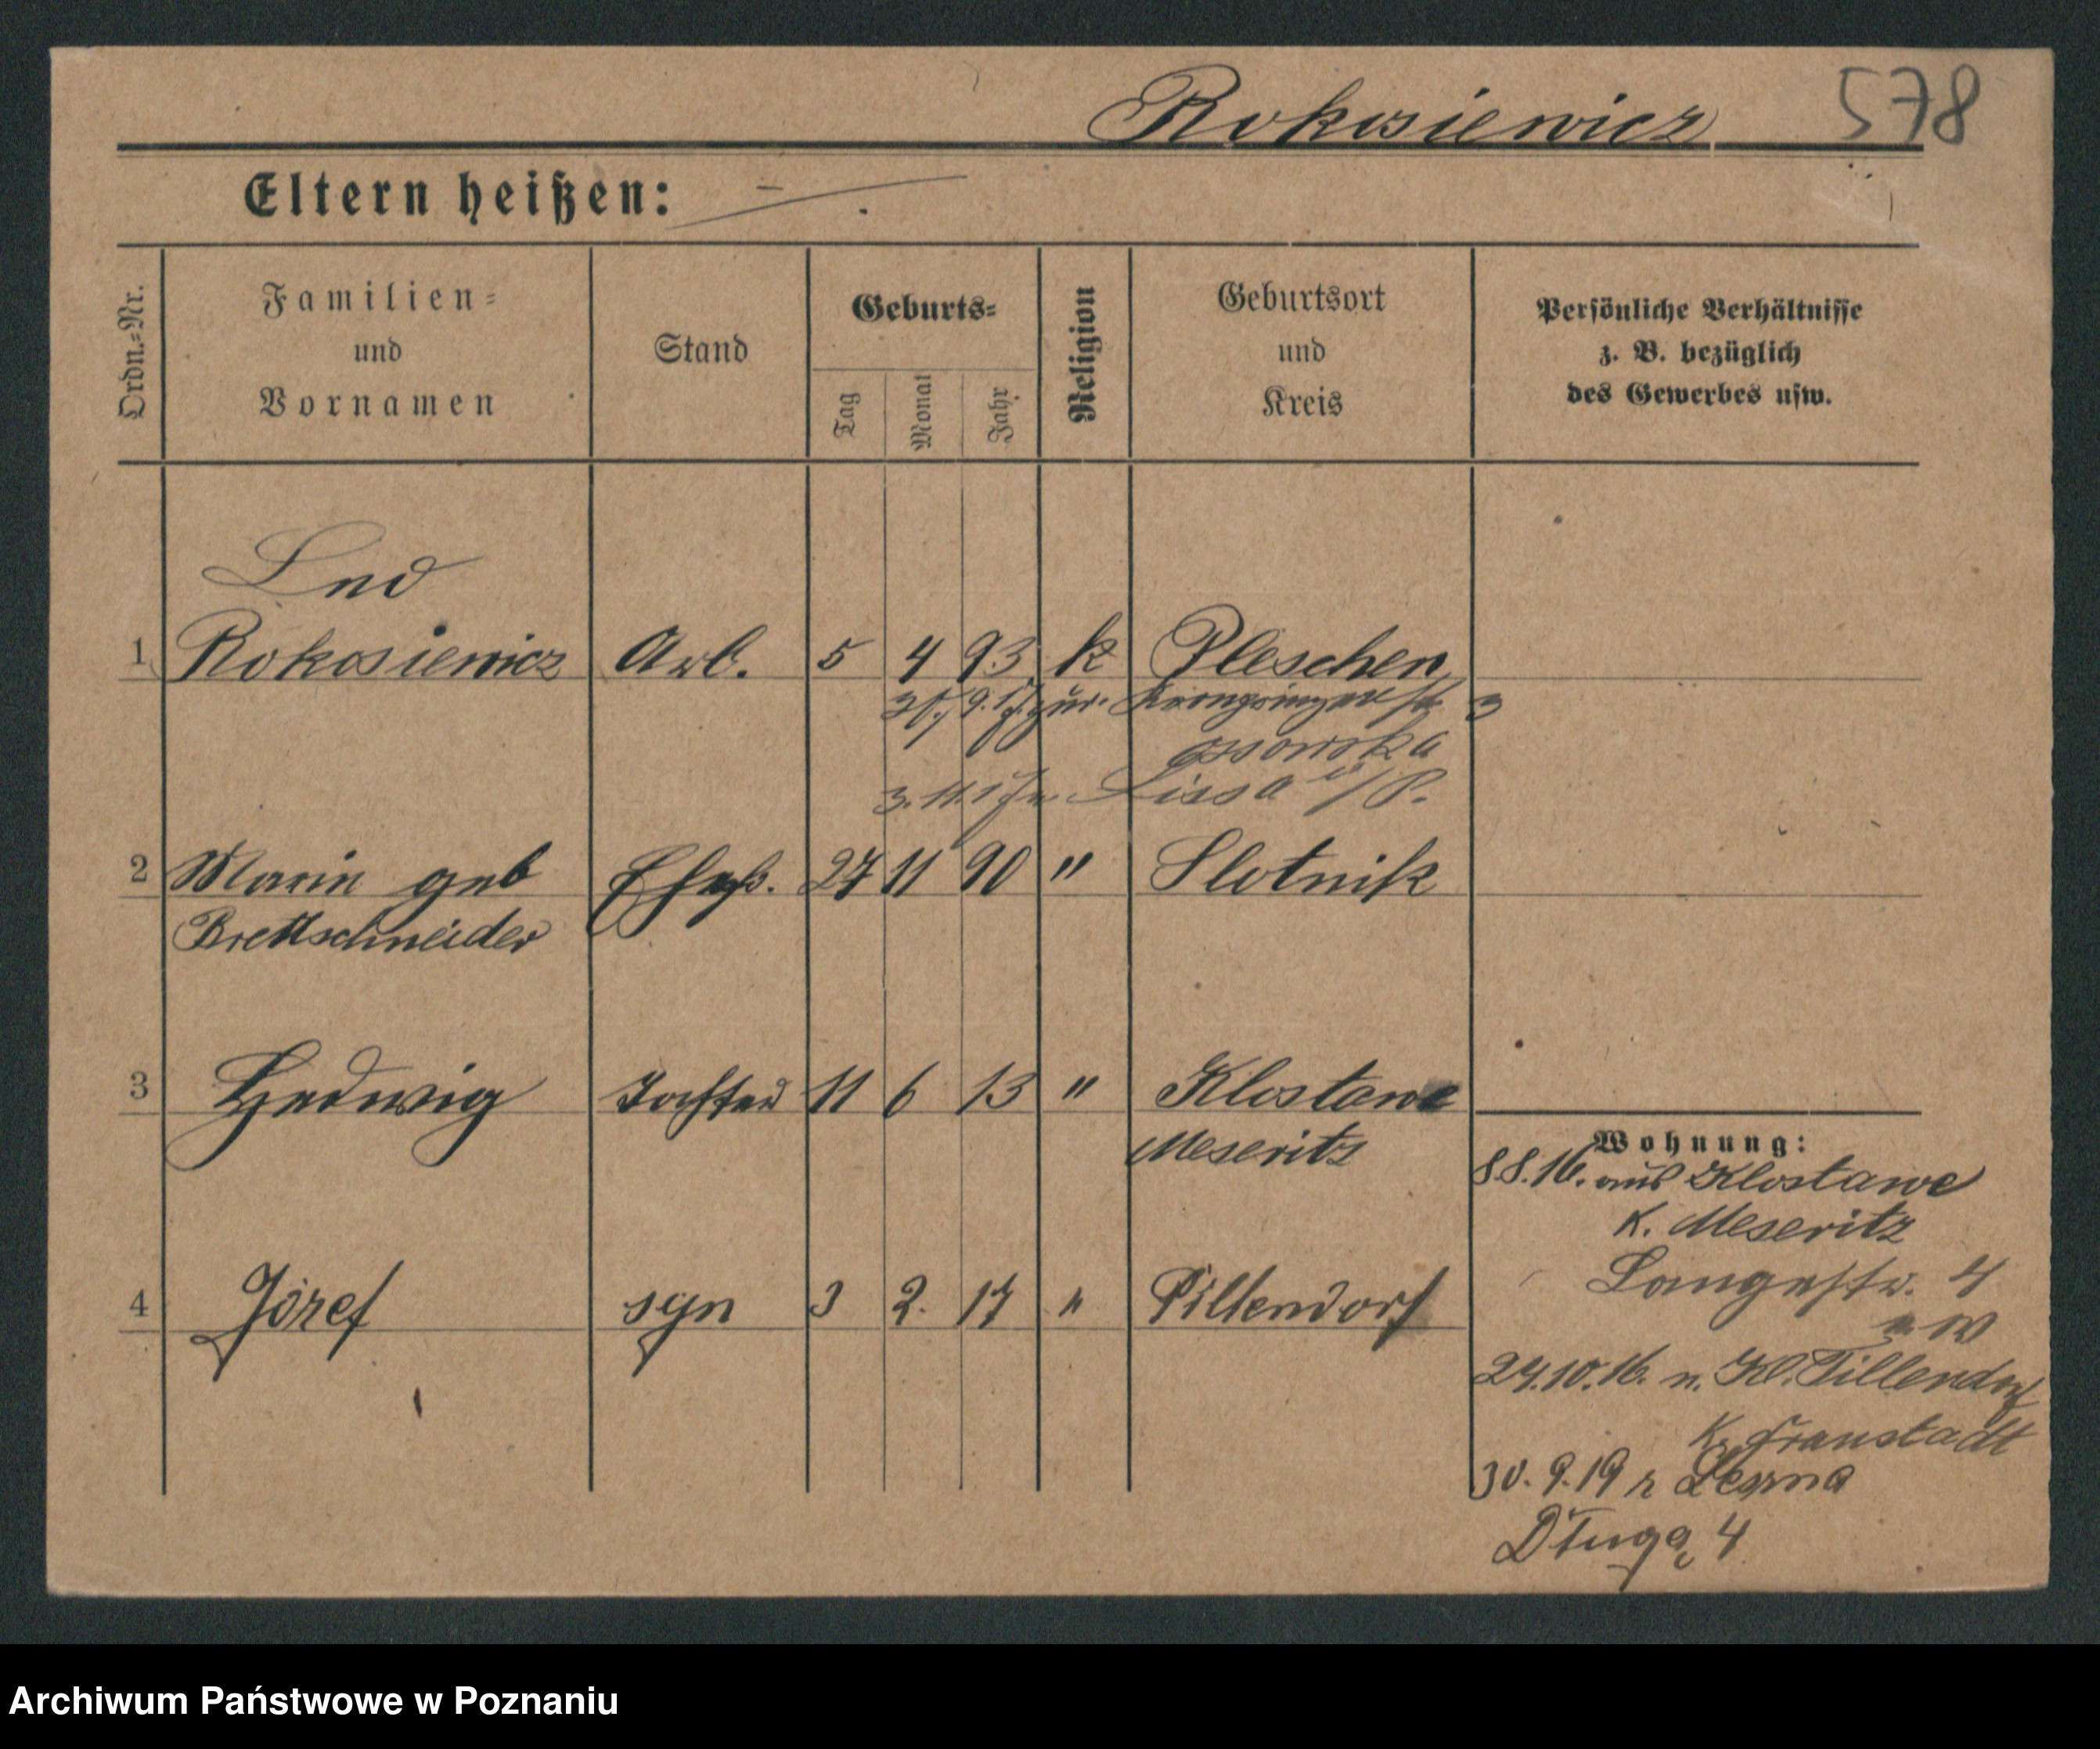 Rokosiewicz 578
Eltern heißen: —
Ordn.-Nr.
Familien-
und
Vornamen
Stand
Geburts-
Tag
Monat
Jahr
Religion
Geburtsort
und
Kreis
Persönliche Verhältnisse
z. B. bezüglich
des Gewerbes usw.
Lud
1 Rokosiewicz Arb. 5 4 93 k Pleschen
zur. Kronprinzenstr 3
ossowska
Lissa i/P.
2 Marie geb Ehefr. 27 11 90 " Slotnik
Brettschneider
3 Hedwig Tochter 11 6 13 " Klostawe
Meseritz
Wohnung:
8.8.16. aus Klostawe
K. Meseritz
Langestr. 4
4 Józef syn 3 2. 17 " Tillendorf
24.10.16. n. Kl. Tillendorf
K. Fraustadt
30.9.19 z Leszna
Długa 4
Archiwum Państwowe w Poznaniu